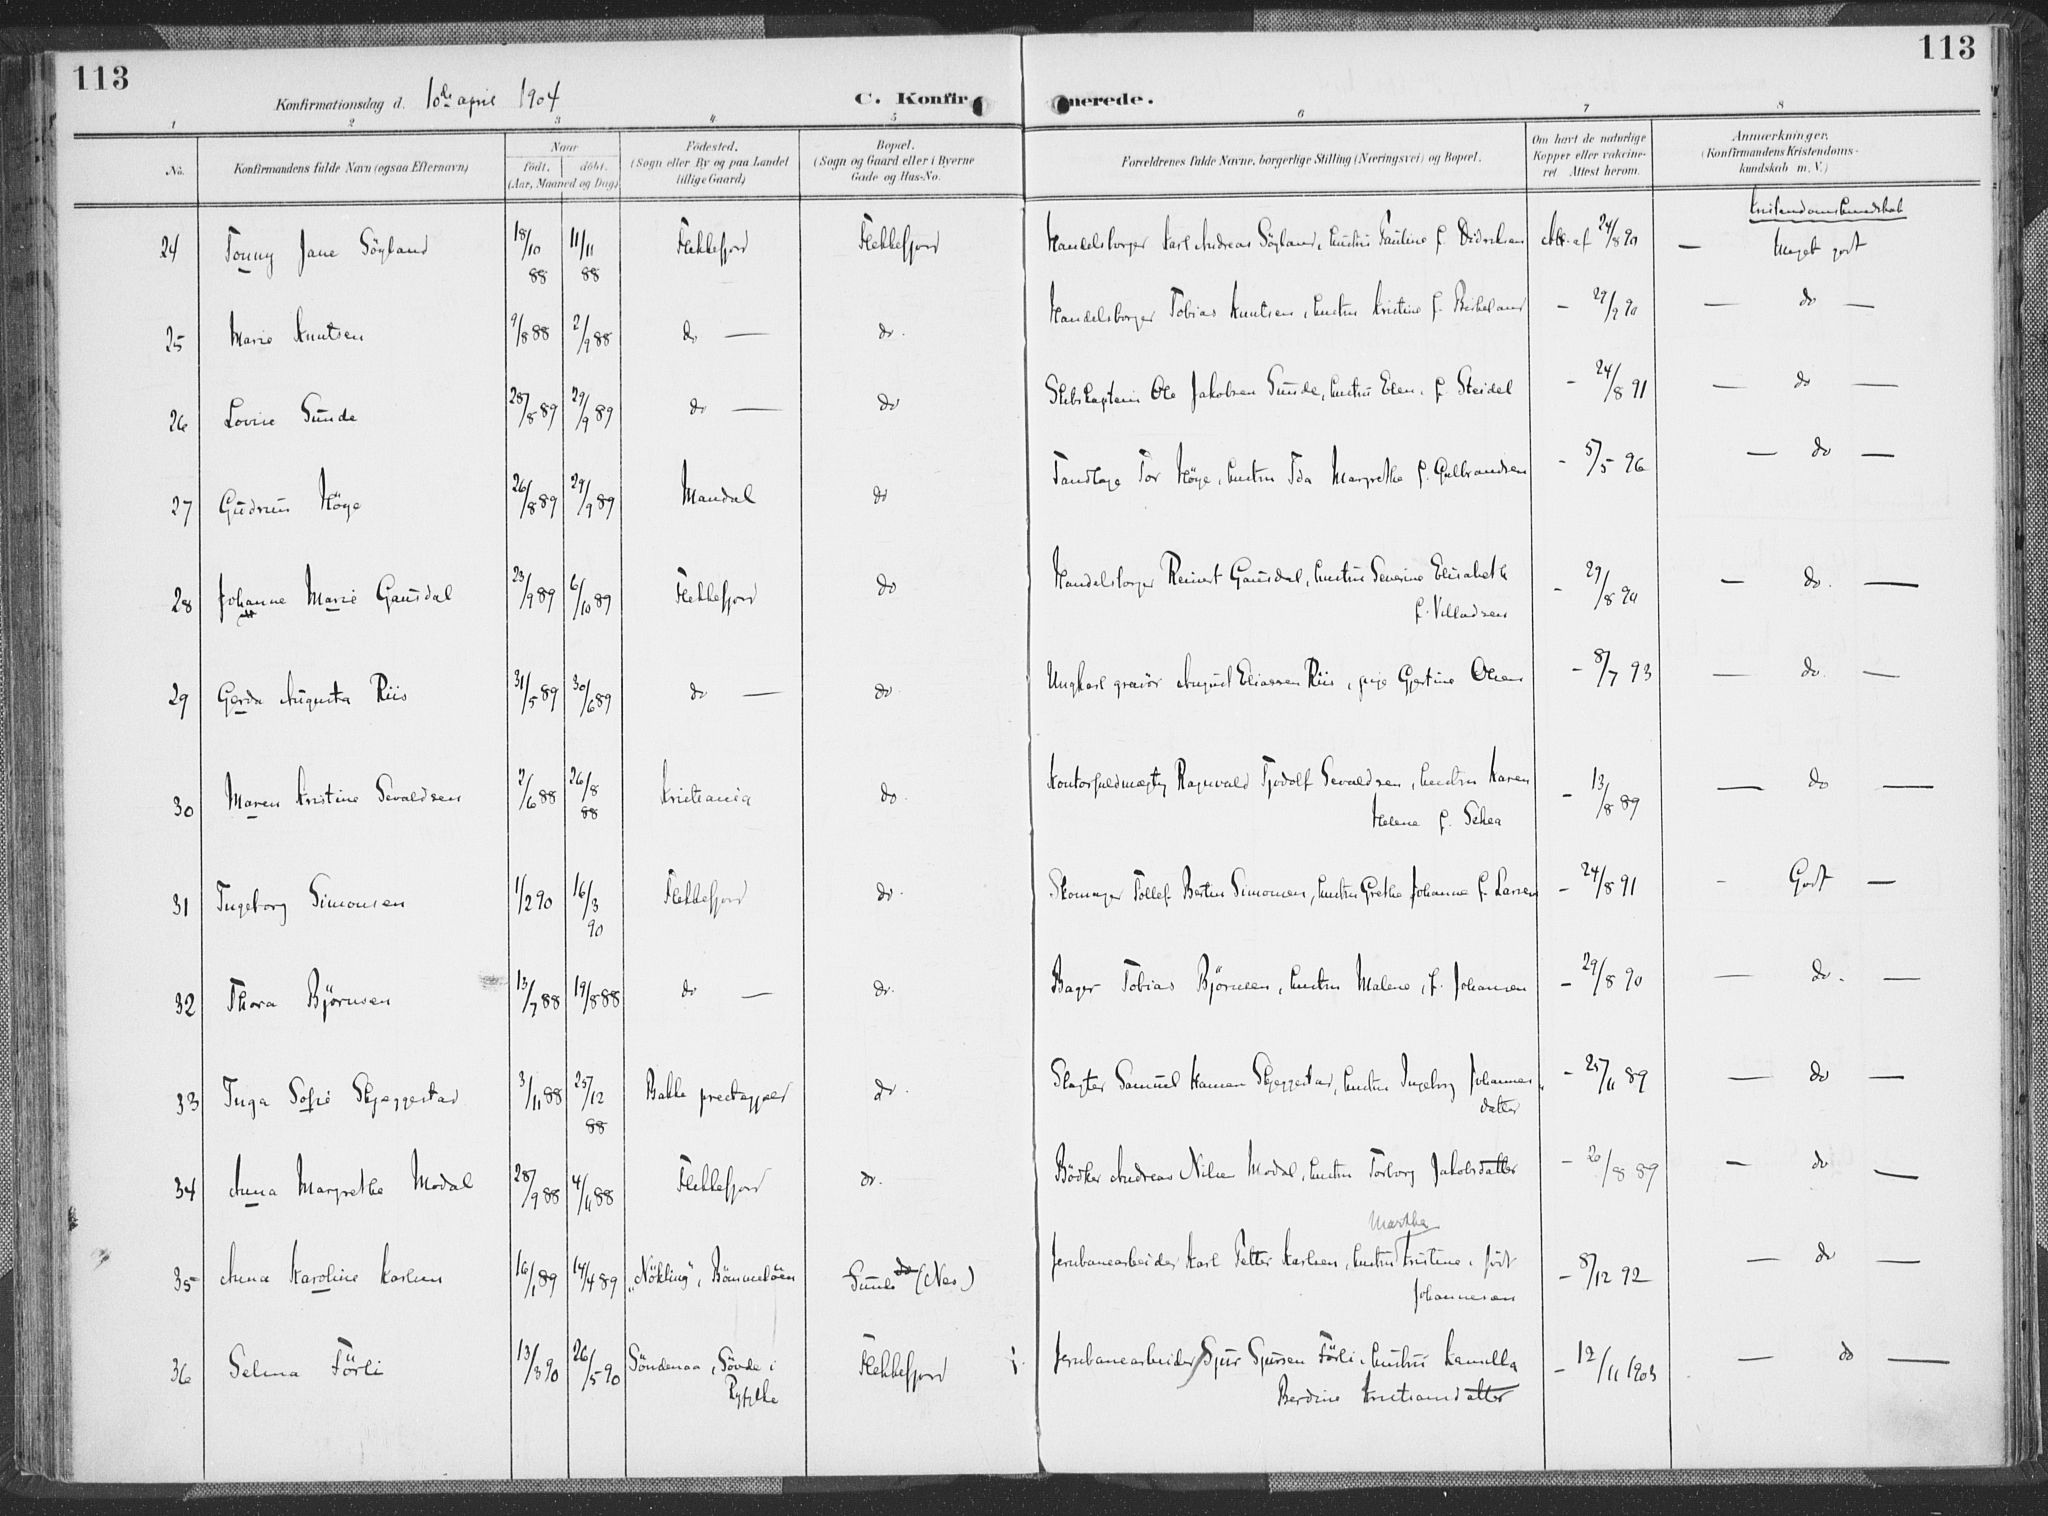 113
113
Konfirmationsdag d. 10de april 1904
C. Konfir merede.
1 2 3 4 5 6 7 8
No. Konfirmandens fulde Navn (ogsaa Efternavn) Naar födt. döbt. (Aar, Maaned og Dag) Födested. (Sogn eller By og paa Landet tillige Gaard) Bopæl. (Sogn og Gaard eller i Byerne Gade og Hus-No. Forældrenes fulde Navne, borgerlige Stilling (Næringsvei) og Bopæl. Om havt de naturlige Kopper eller vakcineret Attest herom. Anmærkninger. (Konfirmandens Kristendomskundskab m. V.)
Kristendomskundskab
24 Tonny Jane Söyland 18/10 88 11/11 88 Flekkefjord Flekkefjord Handelsborger Karl Andreas Söyland, hustru Pauline f. Didriksen Att. af 24/8 90 — Meget godt
25 Marie Knutsen 9/8 88 2/9 88 do — do. Handelsborger Tobias Knutsen, hustru Kristine f. Birkeland – 29/9 90 — do —
26 Lovise Sunde 28/8 89 29/9 89 do — do Skibskaptein Ole Jakobsen Sunde, hustru Elen f. Steidel – 24/8 91 — do —
27 Gudrun Höye 26/8 89 29/9 89 Mandal do Tandlæge Tor Höye, hustru Ida Margrethe f. Gulbrandsen – 5/5 96 — do —
28 Johanne Marie Gausdal 23/9 89 6/10 89 Flekkefjord do Handelsborger Reinert Gausdal, hustru Severine Elisabeth
f. Villadsen – 29/8 90 — do. —
29 Gerda Augusta Riis 31/5 89 30/6 89 do — do. Ungkarl gravör August Eliassen Riis, pige Gjertine Olsen – 8/7 93 — do. —
30 Maren Kristine Sevaldsen 2/6 88 26/8 88 Kristiania do. Kontorfuldmægtig Ragnvald Tjodolf Sevaldsen, hustru Karen
Helene f. Schea – 13/8 89 — do —
31 Ingeborg Simonsen 1/2 90 16/3 90 Flekkefjord do. Skomager Tollef Bertin Simonsen, hustru Grethe Johanne f. Larsen – 24/8 91 – Godt —
32 Thora Björnsen 13/7 88 19/8 88 do — do. Bager Tobias Björnsen, hustru Malene, f. Johansen – 29/8 90 — do. —
33 Inga Sofie Skjeggestad 3/11 88 25/12 88 Bakke prestegjeld do. Slagter Samuel Hansen Skjeggestad, hustru Ingeborg Johannes
datter – 25/11 89 — do —
34 Anna Margrethe Modal 28/9 88 4/11 88 Flekkefjord do. Bödker Andreas Nilsen Modal, hustru Torborg Jakobsdatter – 26/8 89 — do —
Martha
35 Anna Karoline Karlsen 16/1 89 14/4 89 "Nökling", Bömmelöen Sunde (Nes) Jernbanearbeider Karl Petter Karlsen, hustru Kristine, födt
Johannesen – 8/12 92 — do —
36 Selma Förli 13/3 90 26/5 90 Söndenaa, Sövde i
Ryfylke Flekkefjord Jernbanearbeider Sjur Sjursen Förli, hustru Kamilla
Berdine Kristiansdatter – 12/11 1903 — do —